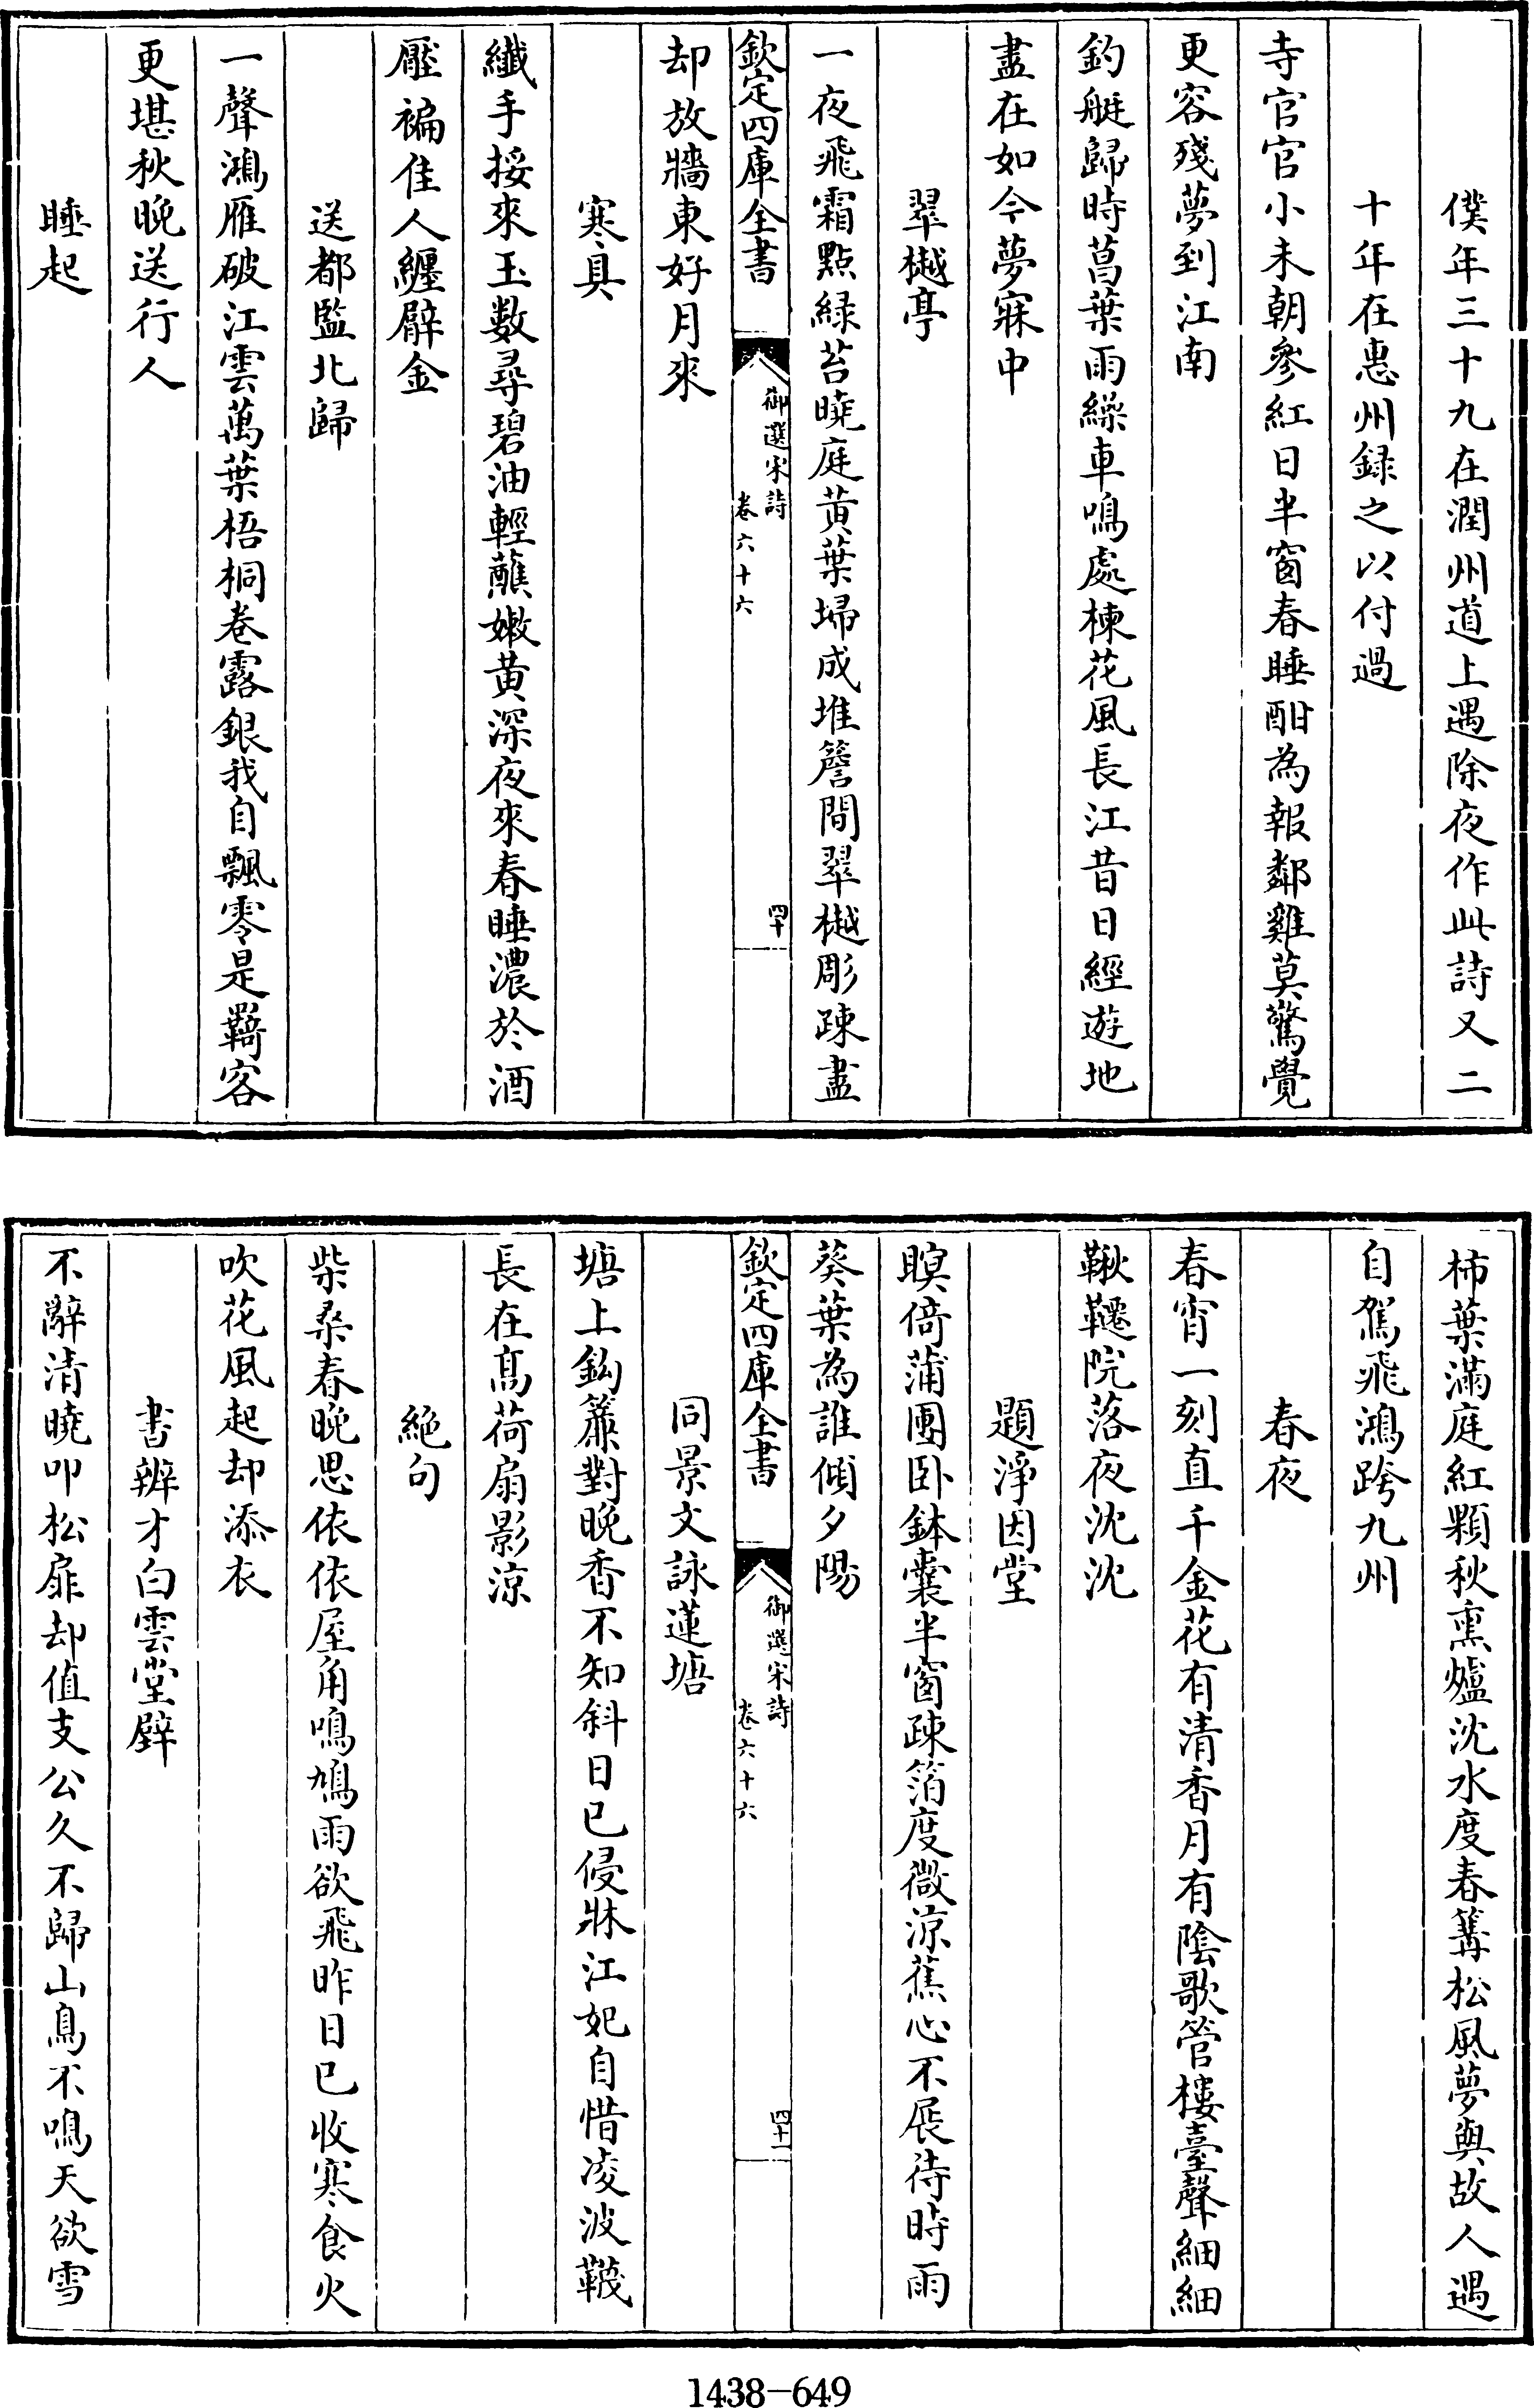 僕年三十九在潤州道上遇除夜作此詩又二
十年在惠州録之以付過
寺官官小未朝參紅日半窗春睡酣為報鄰雞莫驚覺
更容殘夢到江南
釣艇歸時菖葉雨繰車鳴處楝花風長江昔日經遊地
盡在如今夢寐中
翠樾亭
一夜飛霜點緑苔曉庭黄葉埽成堆簷間翠樾彫疎盡
欽定四庫全書
御選宋詩
卷六十六
四十
却放牆東好月來
寒具
纖手挼來玉數尋碧油輕蘸嫩黄深夜來春睡濃於酒
壓褊佳人纏臂金
送都監北歸
一聲鴻雁破江雲萬葉梧桐卷露銀我自飄零是羇客
更堪秋晚送行人
睡起
柿葉滿庭紅顆秋熏爐沈水度春篝松風夢與故人遇
自駕飛鴻跨九州
春夜
春宵一刻直千金花有清香月有陰歌管樓臺聲細細
鞦韆院落夜沈沈
題淨因堂
瞑倚蒲團卧鉢囊半窗疎箔度微涼蕉心不展待時雨
葵葉為誰傾夕陽
欽定四庫全書
御選宋詩
卷六十六
四十一
同景文詠蓮塘
塘上鈎簾對晚香不知斜日已侵牀江妃自惜凌波韈
長在髙荷扇影涼
絶句
柴桑春晚思依依屋角鳴鳩雨欲飛昨日已收寒食火
吹花風起却添衣
書辨才白雲堂壁
不辭清曉叩松扉却值支公久不歸山鳥不鳴天欲雪
1438-649